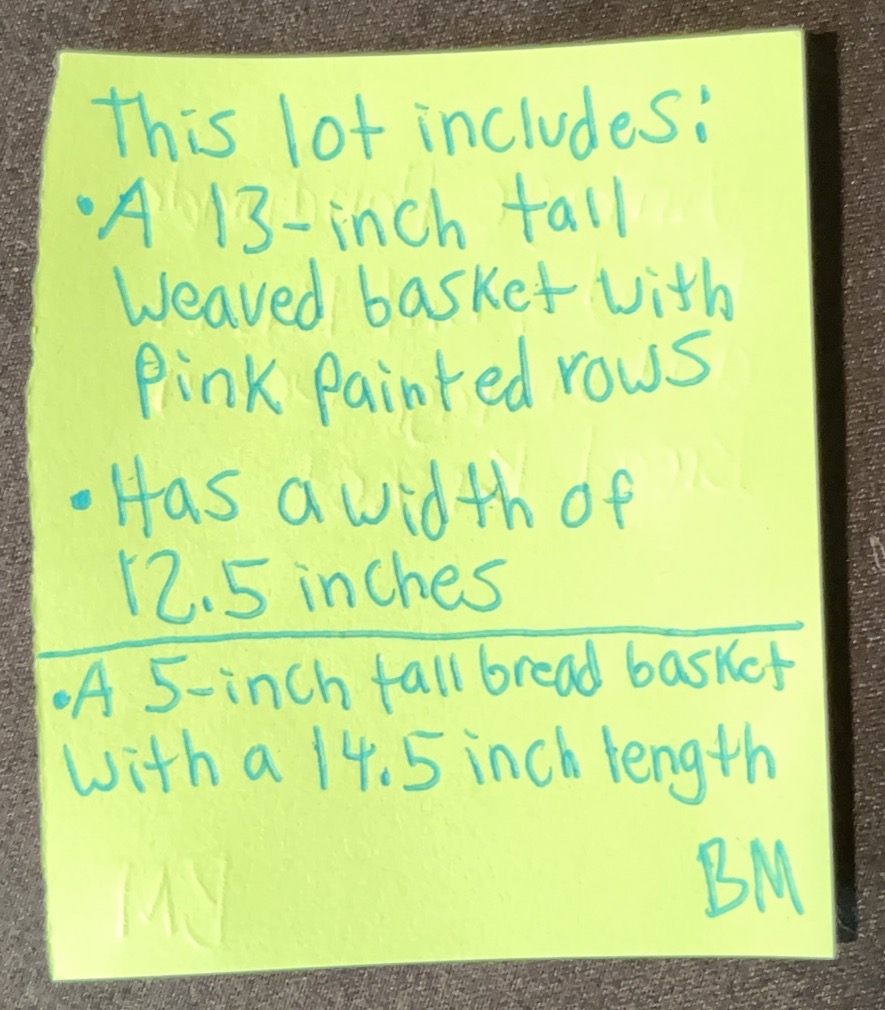 This lot includes:
• A 13-inch tall
weaved basket with
pink painted rows
• Has a width of
12.5 inches
• A 5-inch tall bread basket
with a 14.5 inch length
BM
My